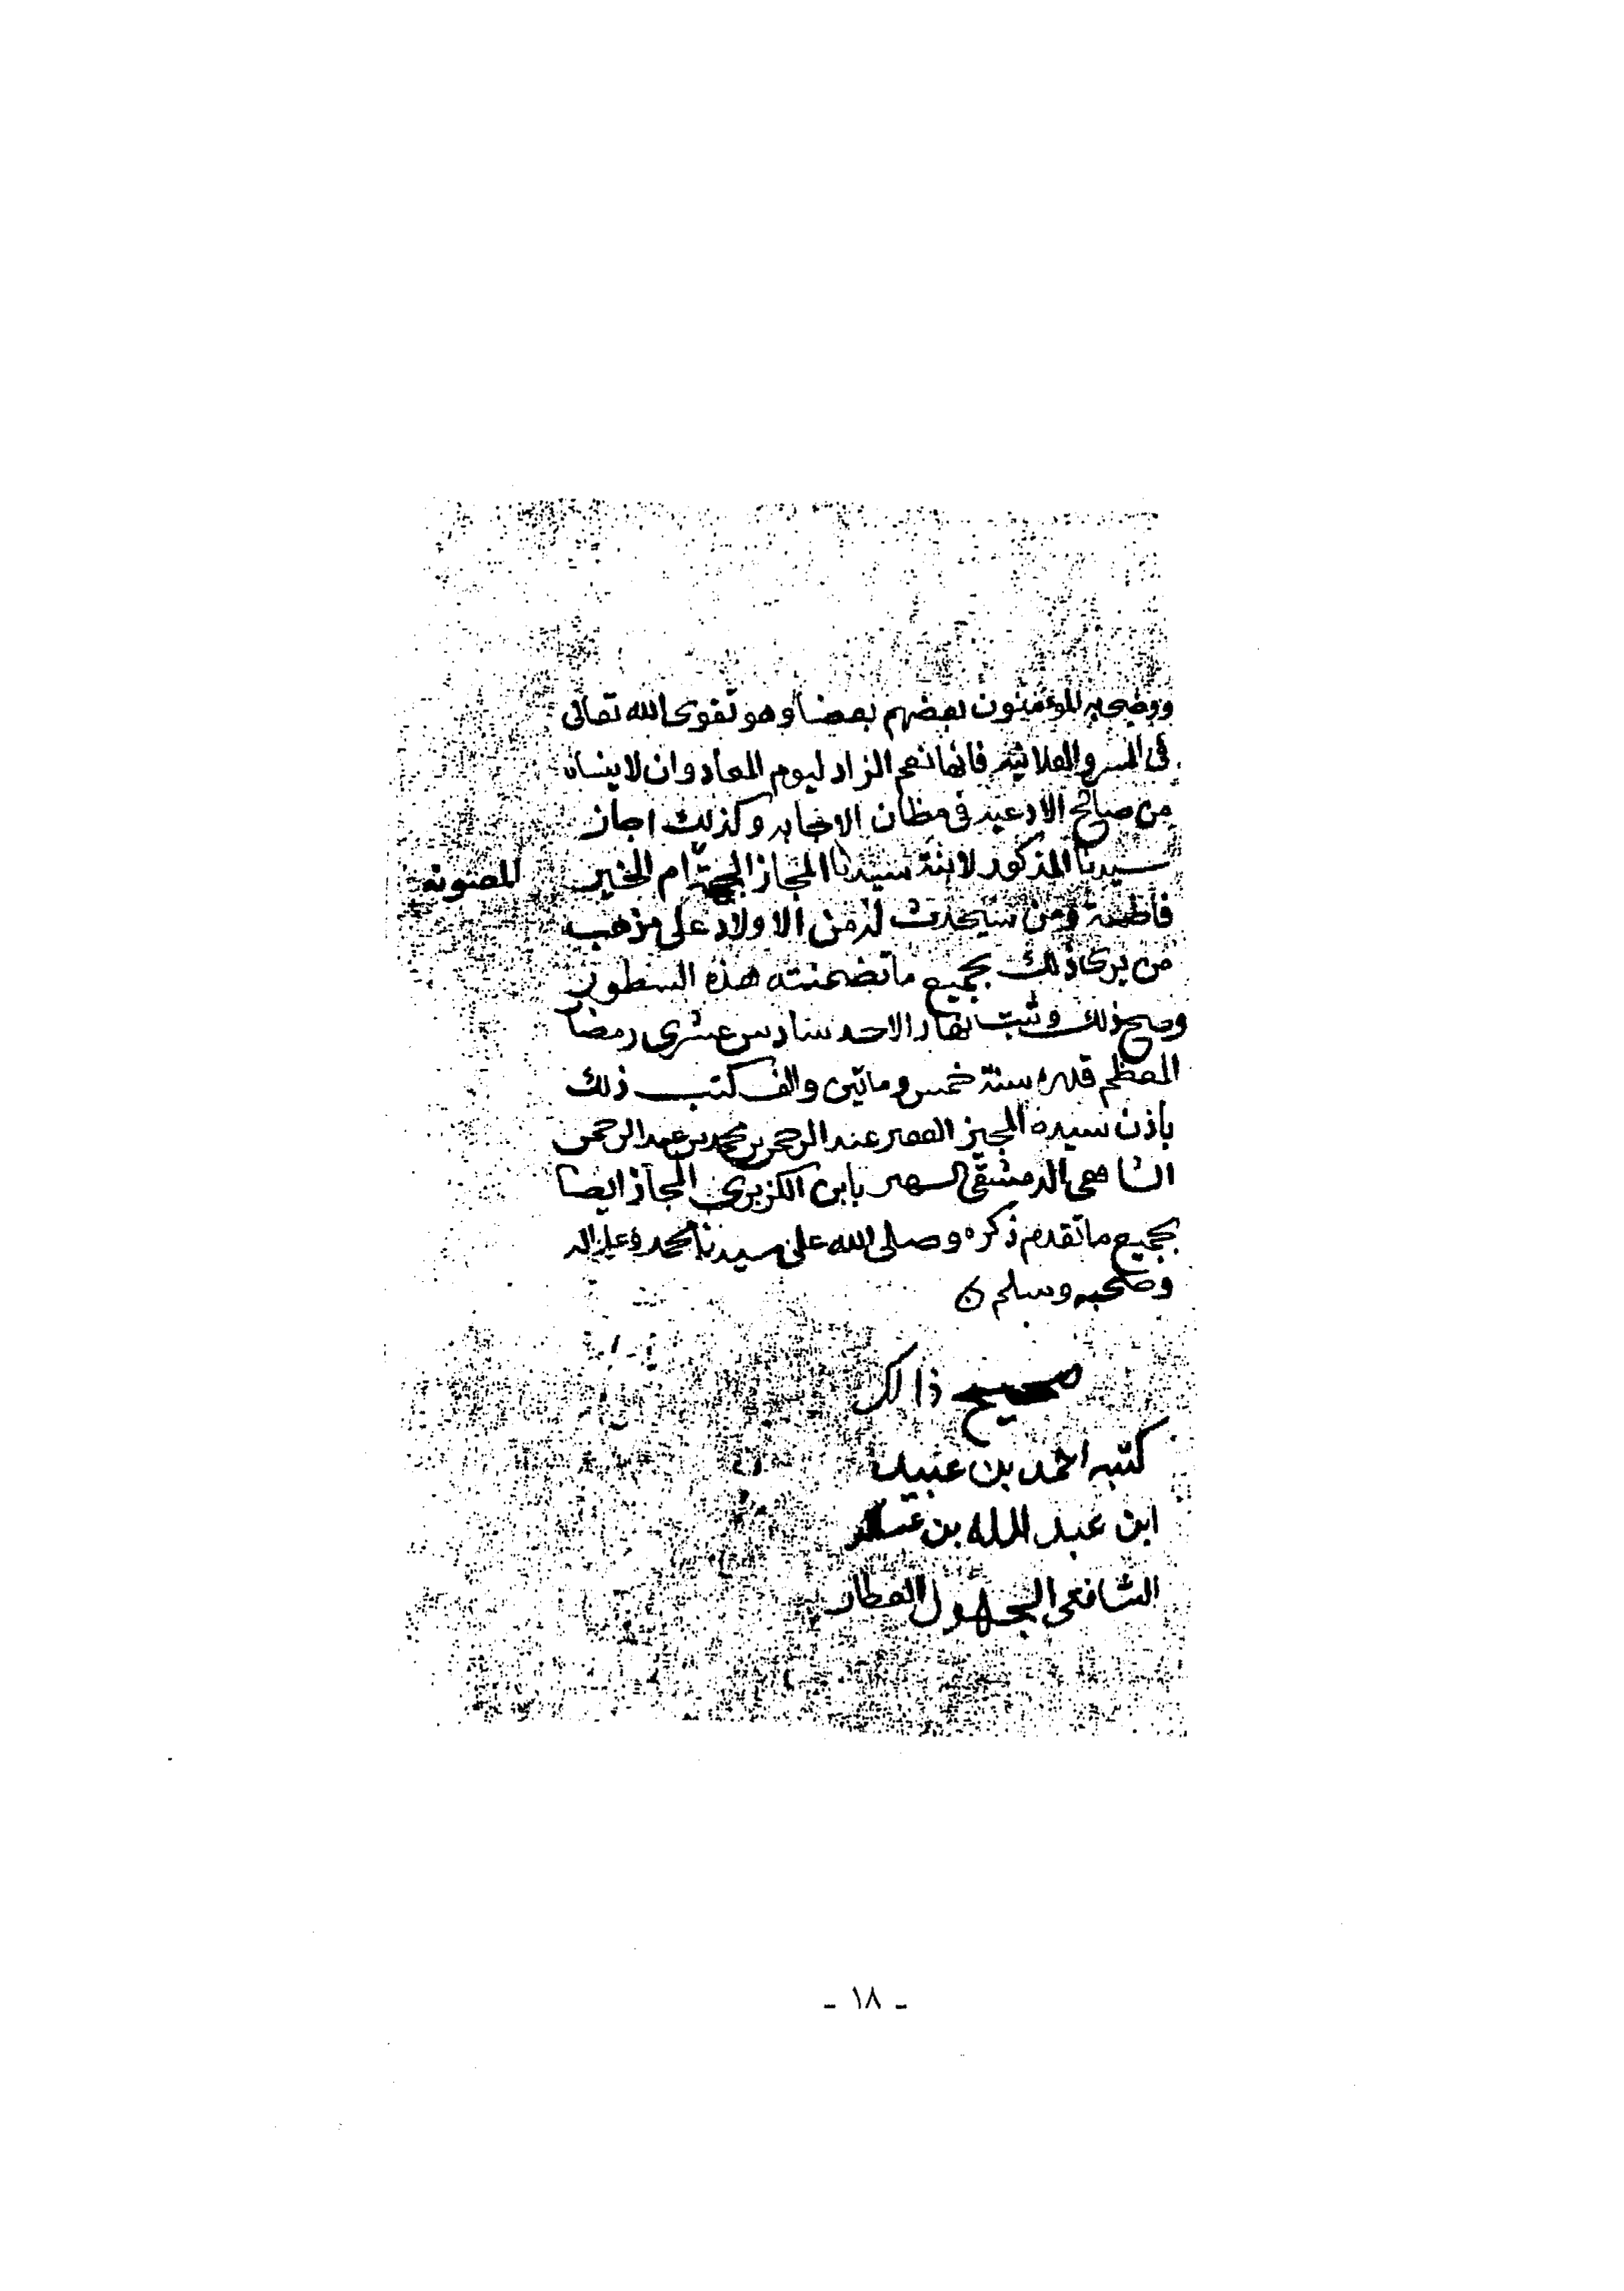 ويوصي به المؤمنون بعضهم بعضا وهو تقوى الله تعالى
في السر والعلانية فانها نعم الزاد ليوم المعاد وان لا ينساه
من صالح الادعيه في مظان الاجابه وكذلك اجاز
سيدنا المذكور لابنة سيدنا المجاز الجهة ام الخير المصونه
فاطمة ومن سيحدث له من الاولاد على مذهب
من يرى ذلك بجميع ما تضمنته هذه السطور
وصح ذلك وثبت نهار الاحد سادس عشري رمضان
المعظم قدره سنة خمس وماتين والف كتب ذلك
باذن سيده المجيز الفقير عبد الرحمن بن محمد بن عبد الرحمن
الشافعي الدمشقي الشهير بابن الكزبري المجاز ايضا
بجميع ما تقدم ذكره وصلى الله على سيدنا محمد وعلى اله
وصحبه وسلم
صحيح ذالك
كتبه احمد بن عبيد
ابن عبد الله بن عسكر
الشافعي العطار
- ١٨ -